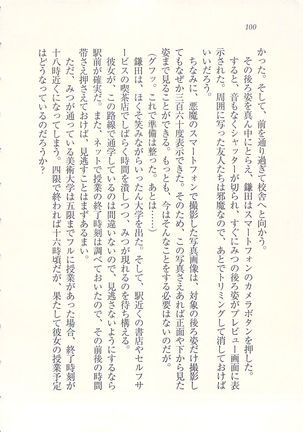 100
かった。そして、前を通り過ぎて校舎へと向かう。
その後ろ姿を真ん中にとらえ、鎌田はスマートフォンのカメラボタンを押した。
すると、音もなくシャッターが切られ、すぐにみつの後ろ姿がプレビュー画面に表
示された。周囲に写った友人たちは邪魔なので、あとでトリミングして消しておけば
いいだろう。
ちなみに、悪魔のスマートフォンで撮影した写真画像は、対象の後ろ姿だけ撮影し
てもなぜか三百六十度表示できた。そのため、この写真さえあれば正面や下から見た
姿まで見ることができる。もっとも、今はそんなことをする必要はないのだが。
(グフッ。これで準備は整った。あとは……)
鎌田は、ほくそ笑みながらいったん大学を出た。そして、駅近くの書店やセルフサ
ービスの喫茶店でしばらく時間を潰しつつ、みつが現れるのを待ち構える。
彼女が、この路線で通学しているのは間違いないので、見逃さないようにするなら
駅前が確実だ。また、ネットで授業の終了時刻は調べておいたので、その前後の時間
帯さえ押さえておけば、見逃すことはまずあるまい。
ただ、みつが通っている美術大学は五限までフルに授業があった場合、終了時刻が
十八時近くになってしまう。四限で終われば十六時頃だが、果たして彼女の授業予定
はどうなっているのだろうか?